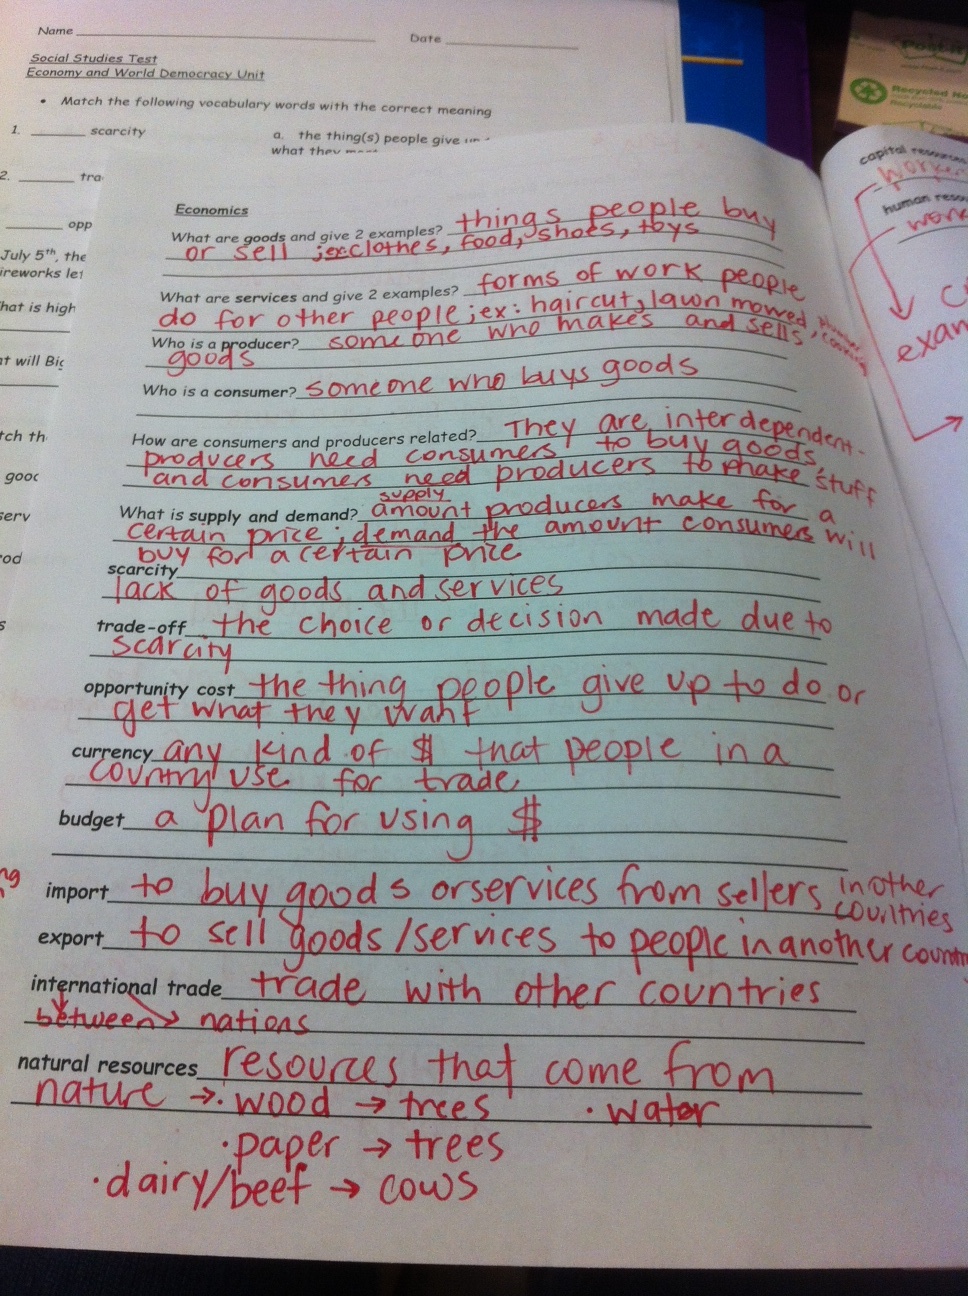 Name
Date
Social Studies Test
Economy and World Democracy Unit
• Match the following vocabulary words with the correct meaning
1. scarcity
a. the thing(s) people give
what they
2. tra
opp
July 5th, the
ireworks le
hat is high
t will Big
tch th
good
serv
od
s
Economics
What are goods and give 2 examples? things people buy
or sell ; ex: clothes, food, shoes, toys
What are services and give 2 examples? forms of work people
do for other people; ex: haircut, lawn mowed,
Who is a producer? someone who makes and sells
goods
Who is a consumer? someone who buys goods
How are consumers and producers related? They are interdependent-
producers need consumers to buy goods
and consumers need producers to make stuff
supply
What is supply and demand? amount producers make for a
certain price; demand the amount consumers will
buy for a certain price
scarcity
lack of goods and services
trade-off the choice or decision made due to
scarcity
opportunity cost the thing people give up to do or
get what they want
currency any kind of $ that people in a
country use for trade
budget a plan for using $
import to buy goods or services from sellers in other
countries
export to sell goods/services to people in another
international trade trade with other countries
between → nations
natural resources resources that come from
nature → · wood → trees · water
· paper → trees
· dairy/beef → cows
capital
human
exam
Post-it
Recycled
Recyclable